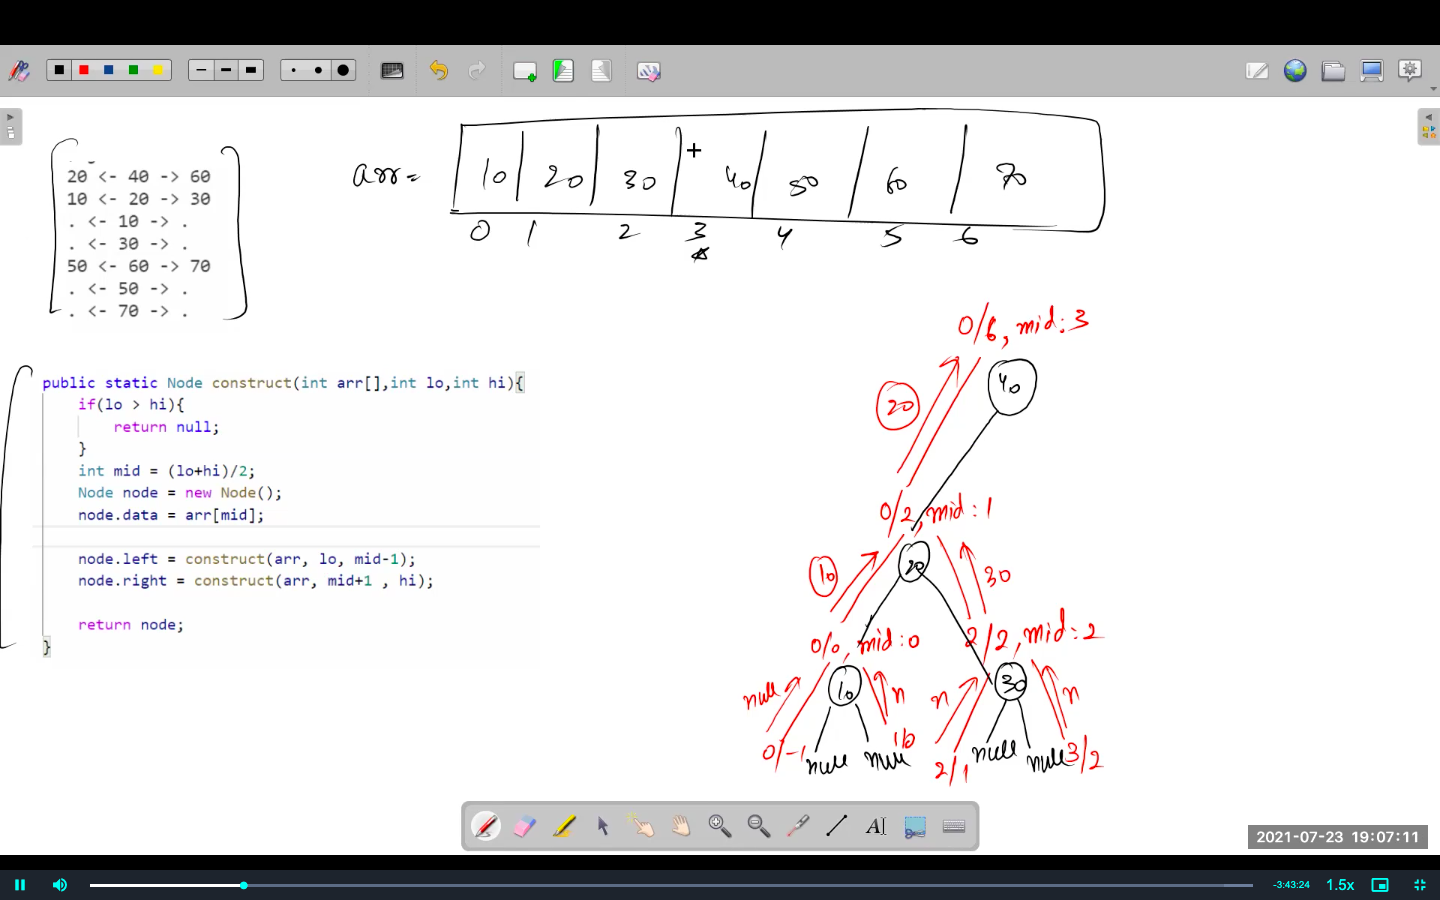 20 <- 40 -> 60
10 <- 20 -> 30
. <- 10 -> .
. <- 30 -> .
50 <- 60 -> 70
. <- 50 -> .
. <- 70 -> .
arr= 10 20 30 40 50 60 70
0 1 2 3 4 5 6
public static Node construct(int arr[],int lo,int hi){
if(lo > hi){
return null;
}
int mid = (lo+hi)/2;
Node node = new Node();
node.data = arr[mid];
node.left = construct(arr, lo, mid-1);
node.right = construct(arr, mid+1 , hi);
return node;
}
0/6, mid: 3
40
20
0/2, mid: 1
20
10
30
0/0, mid: 0
2/2, mid: 2
10
30
null
n
n
n
0/-1
null
null
1/0
2/1
null
null
3/2
A
2021-07-23 19:07:11
-3:43:24 1.5x